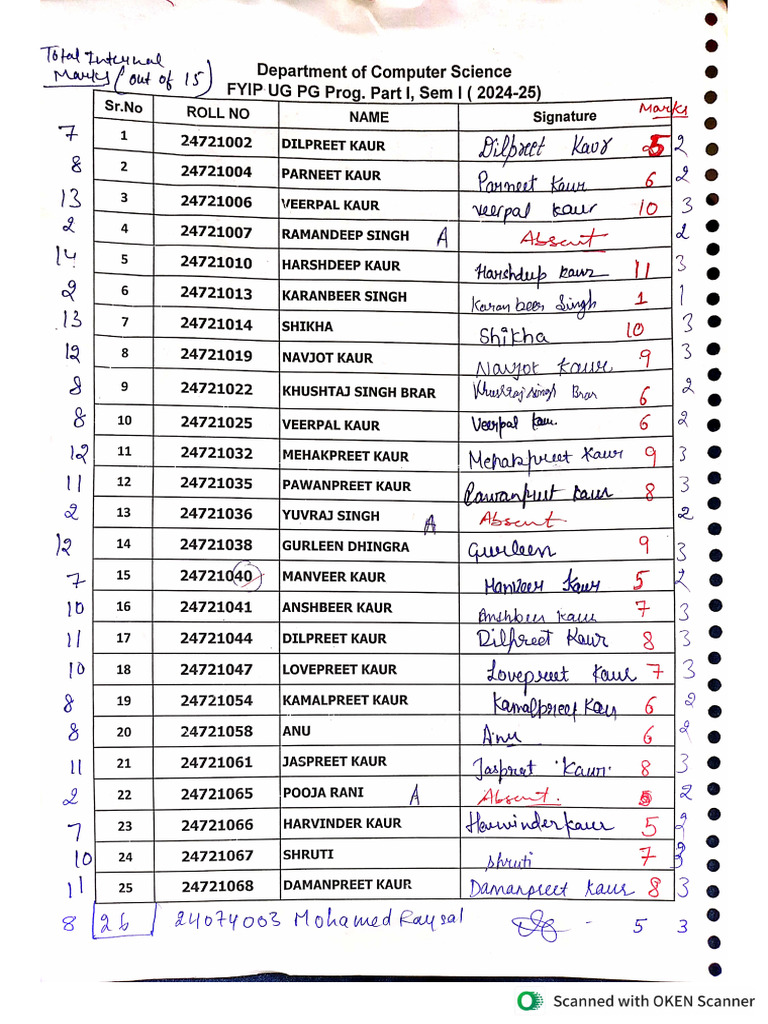 Total Internal
Marks (out of 15)
Department of Computer Science
FYIP UG PG Prog. Part I, Sem I ( 2024-25)
Sr.No ROLL NO NAME Signature Marks
7 1 24721002 DILPREET KAUR Dilpreet Kaur 5 2
8 2 24721004 PARNEET KAUR Parneet Kaur 6 2
13 3 24721006 VEERPAL KAUR Veerpal Kaur 10 3
2 4 24721007 RAMANDEEP SINGH A Absent 2
14 5 24721010 HARSHDEEP KAUR Harshdeep Kaur 11 3
2 6 24721013 KARANBEER SINGH Karanbeer Singh 1 1
13 7 24721014 SHIKHA Shikha 10 3
12 8 24721019 NAVJOT KAUR Navjot Kaur 9 3
8 9 24721022 KHUSHTAJ SINGH BRAR Khushtaj singh Brar 6 2
8 10 24721025 VEERPAL KAUR Veerpal Kaur 6 2
12 11 24721032 MEHAKPREET KAUR Mehakpreet Kaur 9 3
11 12 24721035 PAWANPREET KAUR Pawanpreet Kaur 8 3
2 13 24721036 YUVRAJ SINGH A Absent 2
12 14 24721038 GURLEEN DHINGRA Gurleen 9 3
7 15 24721040 MANVEER KAUR Manveer Kaur 5 2
10 16 24721041 ANSHBEER KAUR Anshbeer Kaur 7 3
11 17 24721044 DILPREET KAUR Dilpreet Kaur 8 3
10 18 24721047 LOVEPREET KAUR Lovepreet Kaur 7 3
8 19 24721054 KAMALPREET KAUR Kamalpreet Kaur 6 2
8 20 24721058 ANU Anu 6 2
11 21 24721061 JASPREET KAUR Jaspreet Kaur 8 3
2 22 24721065 POOJA RANI A Absent 2
7 23 24721066 HARVINDER KAUR Harvinder kaur 5 2
10 24 24721067 SHRUTI shruti 7 3
11 25 24721068 DAMANPREET KAUR Damanpreet Kaur 8 3
8 26 24074003 Mohamed Raysal 5 3
Scanned with OKEN Scanner